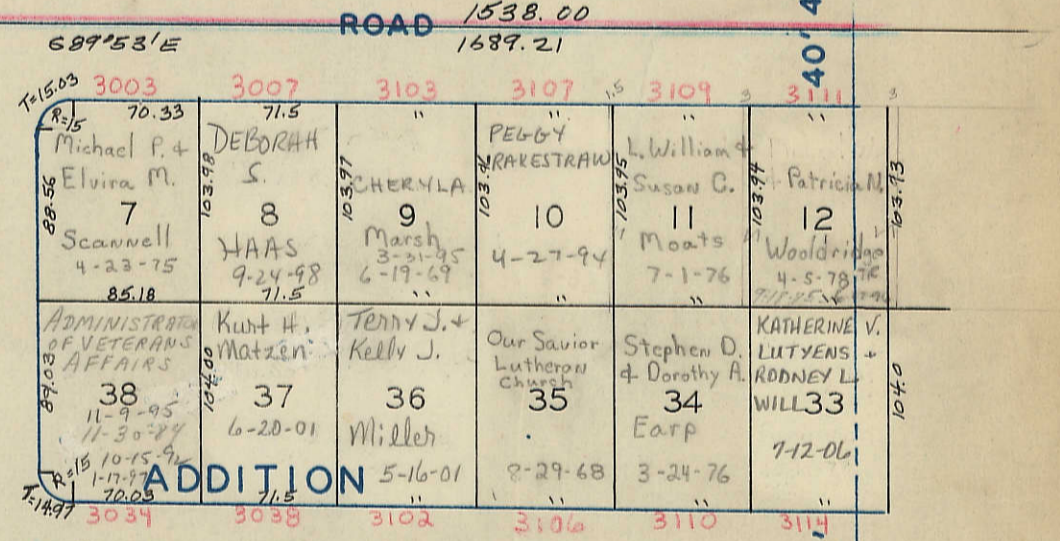 ROAD 1538.00
S89°53'E 1689.21
40'
T=15.03 3003 3007 3103 3107 1.5 3109 3 3111 3
R=15 70.33 71.5 " " " "
Michael P. &
Elvira M.
7
Scannell
4-23-75
88.56
85.18
DEBORAH
S.
8
HAAS
9-24-98
103.98
71.5
CHERYL A.
9
Marsh
3-31-95
6-19-69
103.97
"
PEGGY
RAKESTRAW
10
4-27-94
103.96
"
L. William &
Susan C.
11
Moats
7-1-76
103.95
"
Patricia N.
12
Wooldridge
4-5-78
103.94
103.93
ADMINISTRATOR
OF VETERANS
AFFAIRS
38
11-9-95
11-30-84
10-15-92
1-17-97
89.03
R=15
T=14.97
70.03
Kurt H.
Matzen
37
6-20-01
104.00
71.5
Terry J. &
Kelly J.
36
Miller
5-16-01
"
Our Savior
Lutheran
Church
35
8-29-68
"
Stephen D.
& Dorothy A.
34
Earp
3-24-76
"
KATHERINE V.
LUTYENS &
RODNEY L
WILL 33
7-12-06
"
104.0
ADDITION
3034 3038 3102 3106 3110 3114